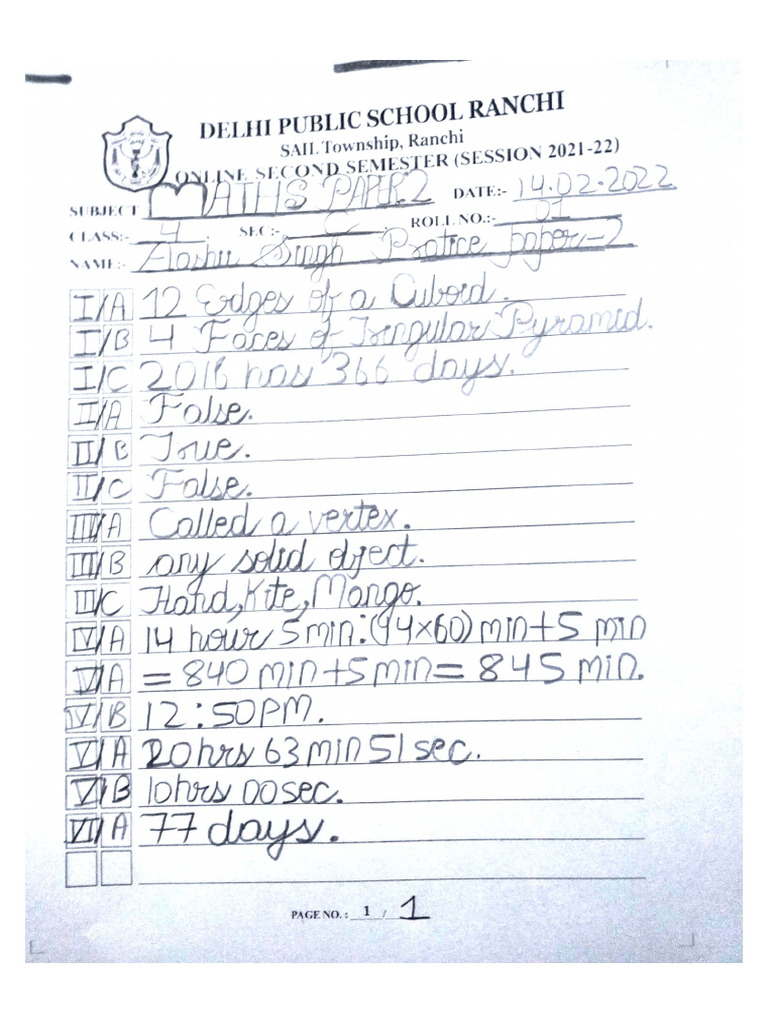 DELHI PUBLIC SCHOOL RANCHI
SAIL Township, Ranchi
ONLINE SECOND SEMESTER (SESSION 2021-22)
SUBJECT MATHS PAPER 2 DATE:- 14.02.2022
CLASS:- 4 SEC:- C ROLL NO.:- 01
NAME:- Singh Pratice paper-2
I/A 12 Edges of a Cuboid.
I/B 4 Faces of Pyramid.
I/C 2016 has 366 days.
II/A False.
II/B True.
II/C False.
III/A Called a vertex.
III/B any solid object.
III/C Hand, Kite, Mango.
IV/A 14 hour 5 min: (14×60) min + 5 min
IV/A = 840 min + 5 min = 845 min.
IV/B 12:50 PM.
V/A 20 hrs 63 min 51 sec.
V/B 10 hrs 00 sec.
VI/A 77 days.
PAGE NO. : 1 / 1